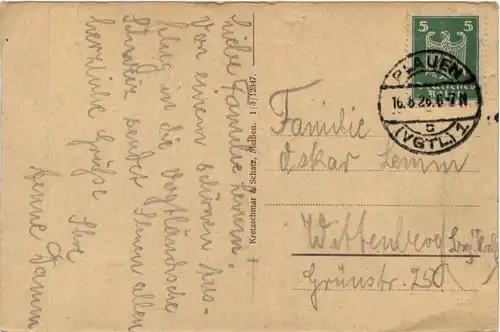 Liebe Familie Lemm.
Von einem schönen Aus-
flug in die Vogtländische
Schweiz sendet Ihnen allen
herzliche Grüße Ihre
Damm
Kretzschmar & Schatz, Meißen. 1/3172347.
5 5
Deutsches
Reich
PLAUEN
16.8.26.6-7N
c
(VGTL.) 1
Familie
Oskar Lemm
Wittenberg
Grünstr. 25